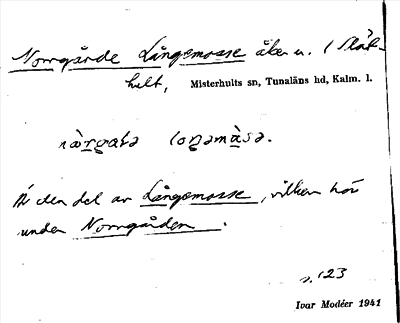 Norrgårde Långemosse åker u. / Släthult,
Misterhults sn, Tunaläns hd, Kalm. l.
Är den del av Långemosse, vilken hör
under Norrgården.
s. 123
Ivar Modéer 1941